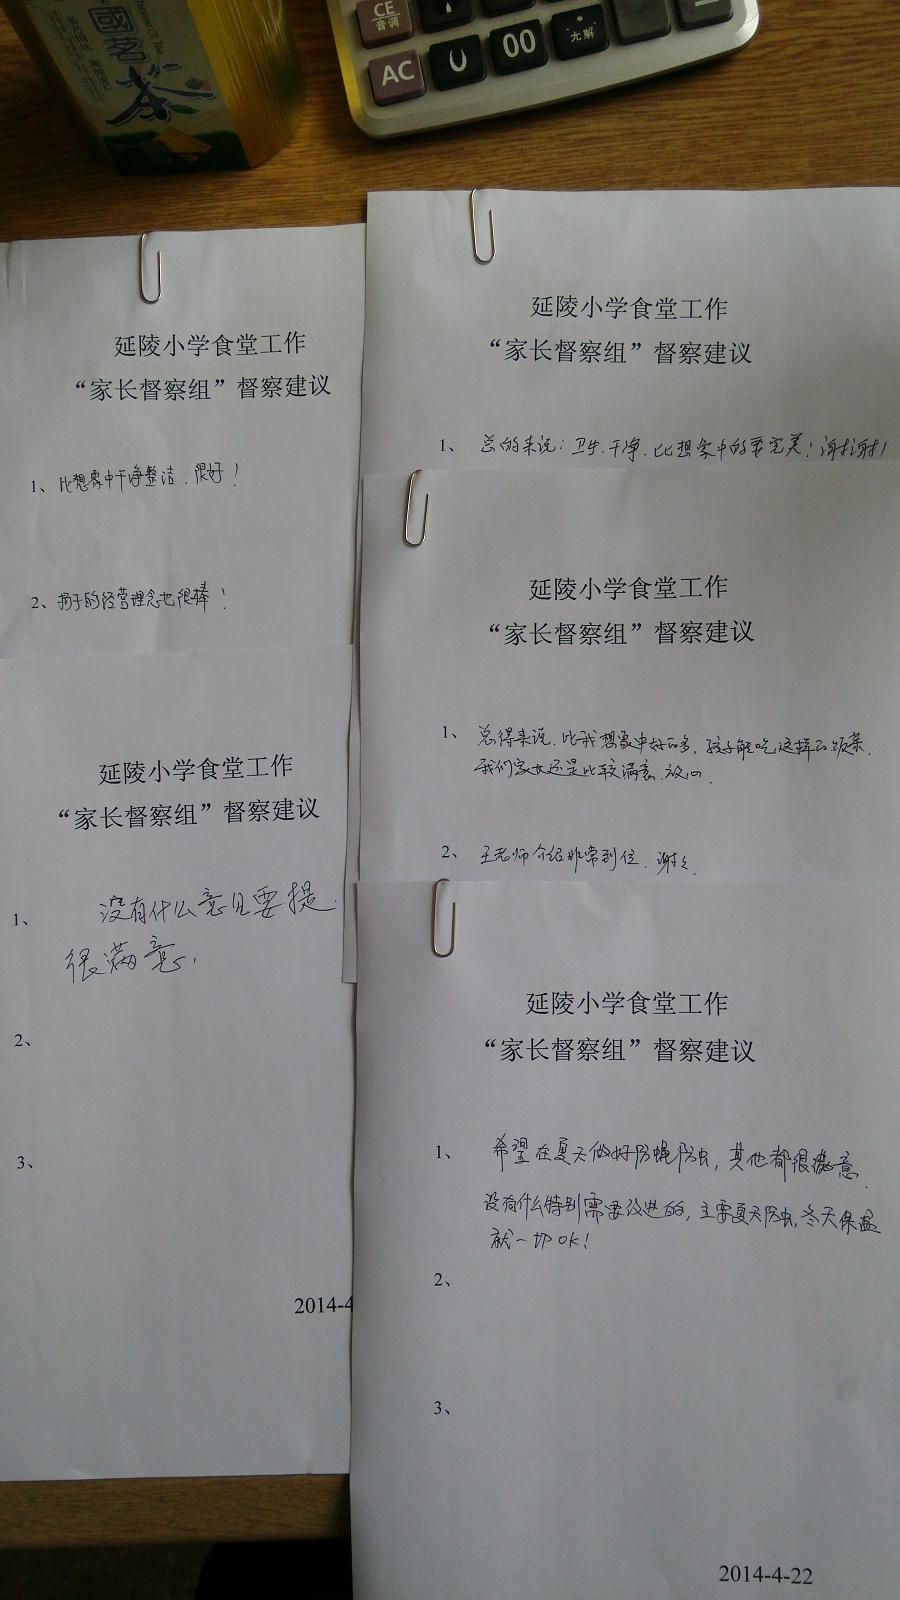 國茗
茶
CE
音调
00
AC
延陵小学食堂工作
“家长督察组”督察建议
1、比想象中干净整洁.很好！
2、孩子的经营理念也很棒！
延陵小学食堂工作
“家长督察组”督察建议
1、总的来说：卫生.干净.比想象中的要完美！谢谢！
延陵小学食堂工作
“家长督察组”督察建议
1、没有什么意见要提.
很满意.
2、
3、
2014-4
延陵小学食堂工作
“家长督察组”督察建议
1、总得来说.比我想象中好的多，孩子能吃这样的饭菜.
我们家长还是比较满意.放心.
2、王老师介绍非常到位.谢谢.
延陵小学食堂工作
“家长督察组”督察建议
1、希望在夏天做好防蝇防虫，其他都很满意.
没有什么特别需要改进的，主要夏天防虫，冬天保温
就一切OK！
2、
3、
2014-4-22